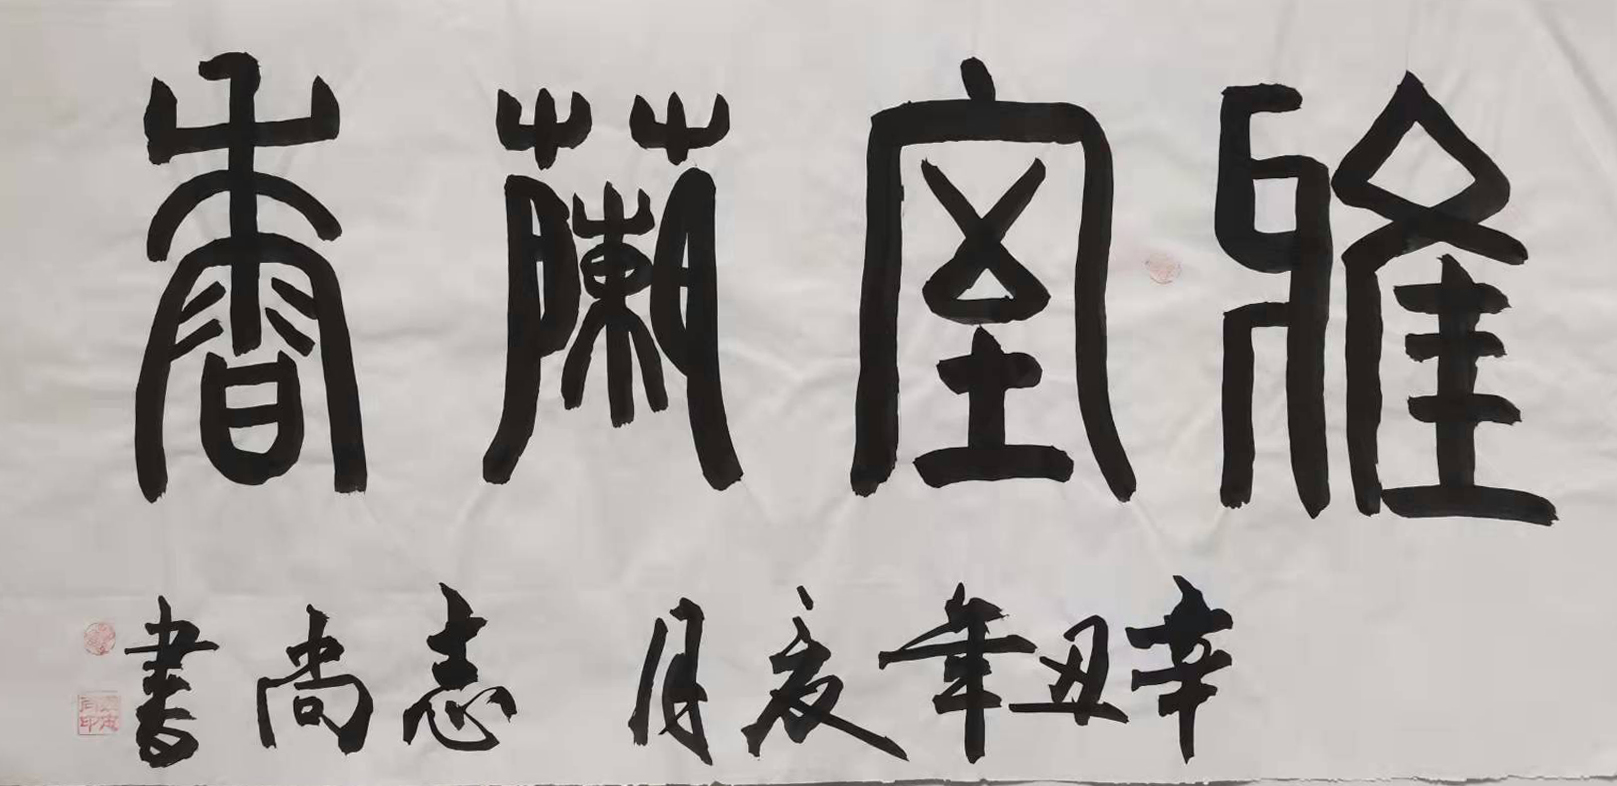 雅室蘭香
辛丑年亥月 志尚書